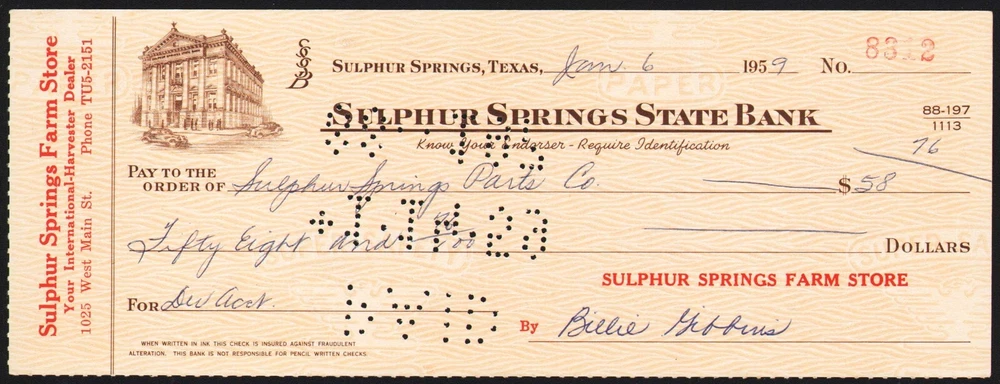 Sulphur Springs Farm Store
Your International-Harvester Dealer
1025 West Main St.    Phone TU5-2151
SULPHUR SPRINGS, TEXAS, Jan 6 1959 No. 8312
SULPHUR SPRINGS STATE BANK
88-197
1113
Know Your Endorser - Require Identification
PAY TO THE
ORDER OF Sulphur Springs Parts Co. $ 58 76
Fifty Eight and 76/00 DOLLARS
SULPHUR SPRINGS FARM STORE
FOR Dec Acct.
By Billie Gibbins
WHEN WRITTEN IN INK THIS CHECK IS INSURED AGAINST FRAUDULENT
ALTERATION. THIS BANK IS NOT RESPONSIBLE FOR PENCIL WRITTEN CHECKS